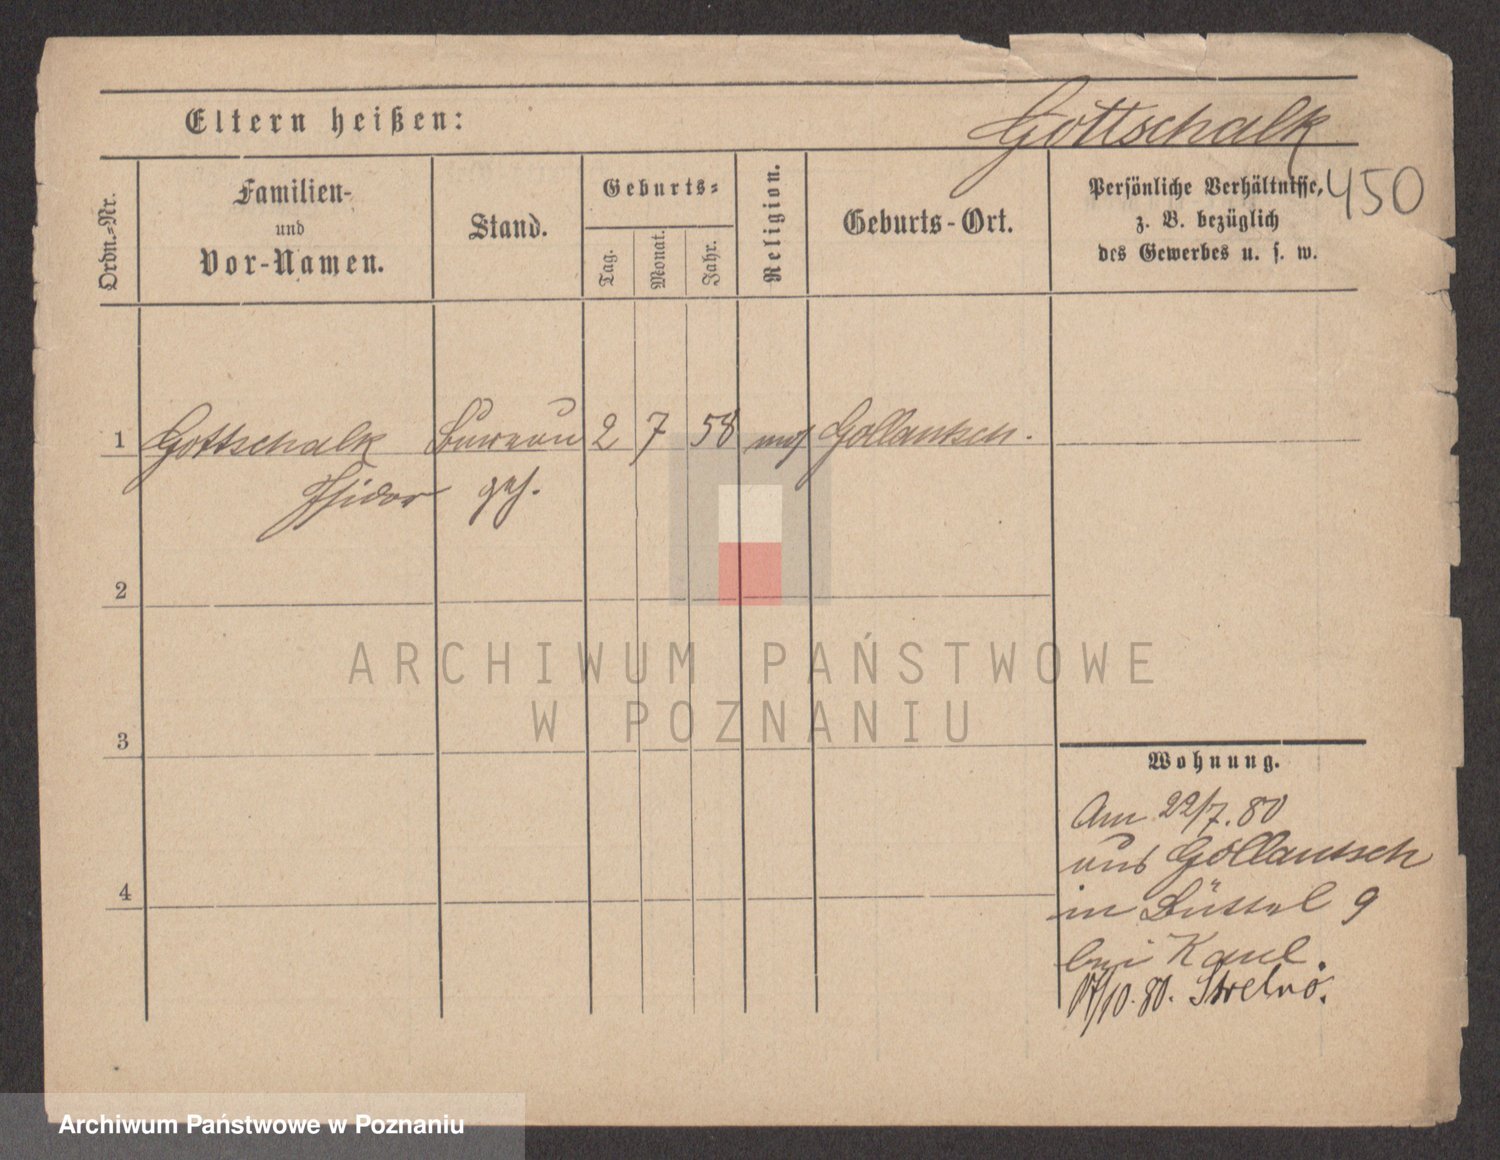 Eltern heißen:
Gottschalk
450
Ordn.-Nr.
Familien-
und
Vor-Namen.
Stand.
Geburts-
Tag.
Monat.
Jahr.
Religion.
Geburts-Ort.
Persönliche Verhältnisse,
z. B. bezüglich
des Gewerbes u. s. w.
1 Gottschalk Bureau 2 7 58 mos Gollantsch.
Isidor geh.
2
3
4
ARCHIWUM PAŃSTWOWE
W POZNANIU
Wohnung.
Am 22/7. 80
aus Gollantsch
in Büttel 9
bei Kaul.
17/10. 80. Strelno.
Archiwum Państwowe w Poznaniu